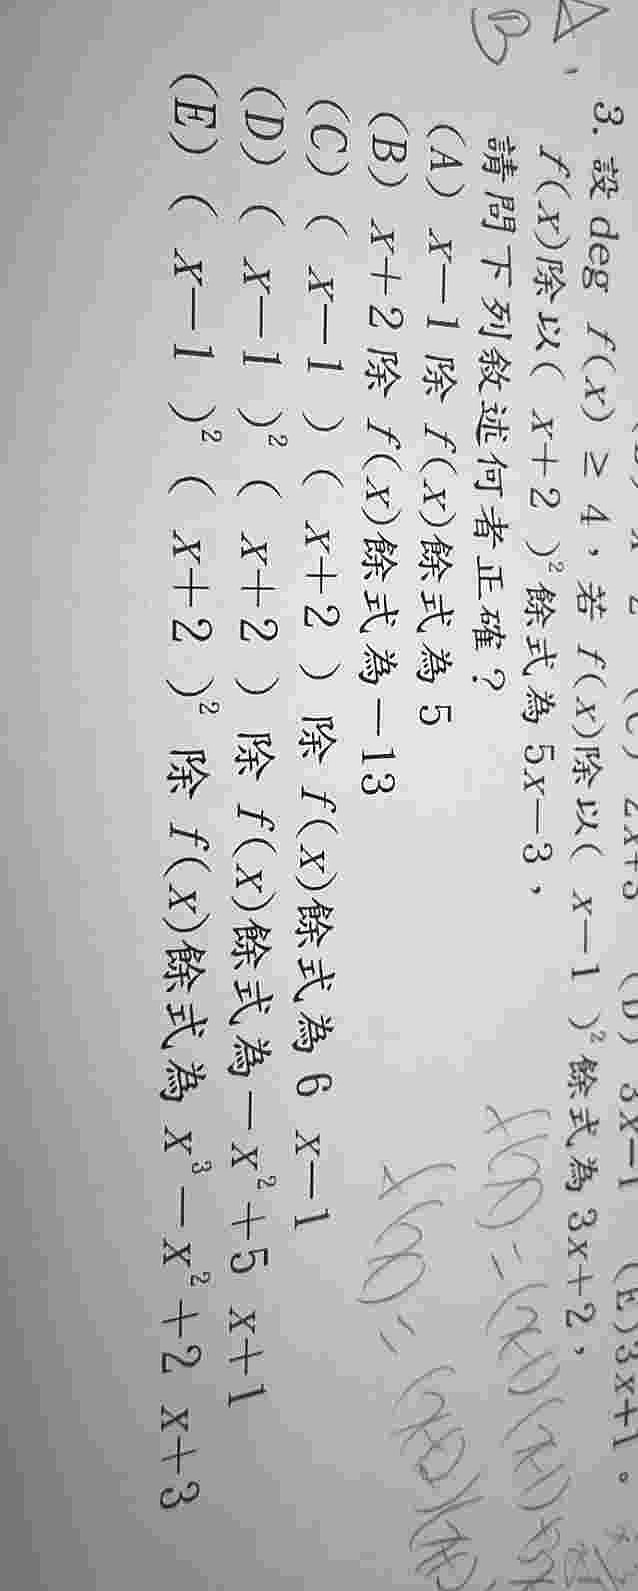 (C) 2x+3 (D) 3x−1 (E)3x+1。
B
3. 設deg f(x) ≥ 4，若 f(x)除以( x−1 )²餘式為 3x+2，
f(x)除以( x+2 )²餘式為 5x−3，
請問下列敘述何者正確？
(A) x−1 除 f(x)餘式為 5
(B) x+2 除 f(x)餘式為 −13
(C) ( x−1 ) ( x+2 ) 除 f(x)餘式為 6 x−1
(D) ( x−1 )² ( x+2 ) 除 f(x)餘式為 −x²+5 x+1
(E) ( x−1 )² ( x+2 )² 除 f(x)餘式為 x³−x²+2 x+3